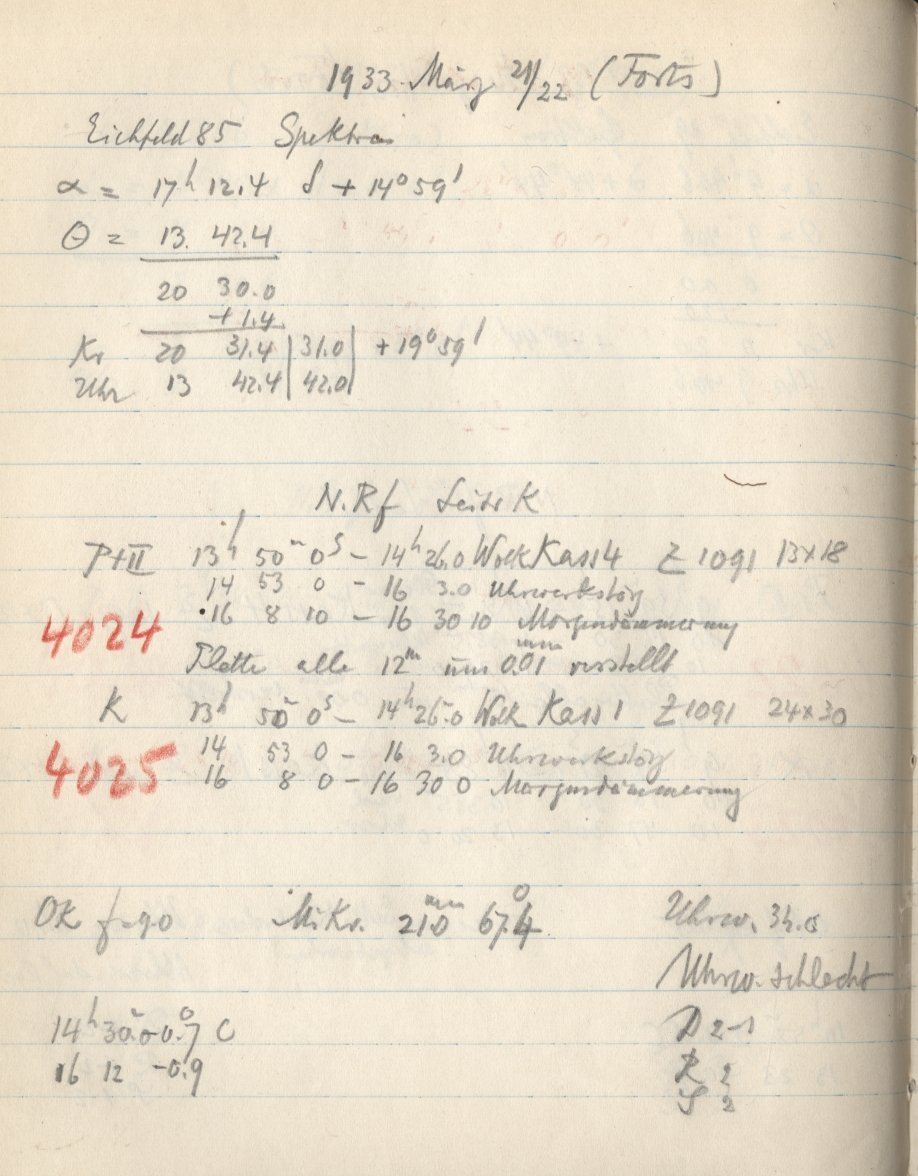 1933 März 21/22 (Forts)
Eichfeld 85 Spektra
α = 17h 12.4 δ + 14° 59'
Θ = 13. 42.4
20 30.0
+1.4
Kr 20 31.4 | 31.0 | + 19° 59'
Uhr 13 42.4 | 42.0 |
N.Rf Seite K
P+II 13h 50m 0s – 14h 26.0 Wolk Kass 4 Z 1091 13x18
14 53 0 – 16 3.0 Uhrwerkstörg
16 8 10 – 16 30 10 Morgendämmerung
4024
Platte alle 12m um 0.01mm verstellt
K 13h 50m 0s – 14h 26.0 Wolk Kass 1 Z 1091 24x30
14 53 0 – 16 3.0 Uhrwerkstörg
4025
16 8 0 – 16 30 0 Morgendämmerung
OK f=90 Mikr. 21.0mm 67.4° Uhrw. 34.0
Uhrw. schlecht
14h 30m -0.7° C D 2-1
16 12 -0.9 R 2
S 2